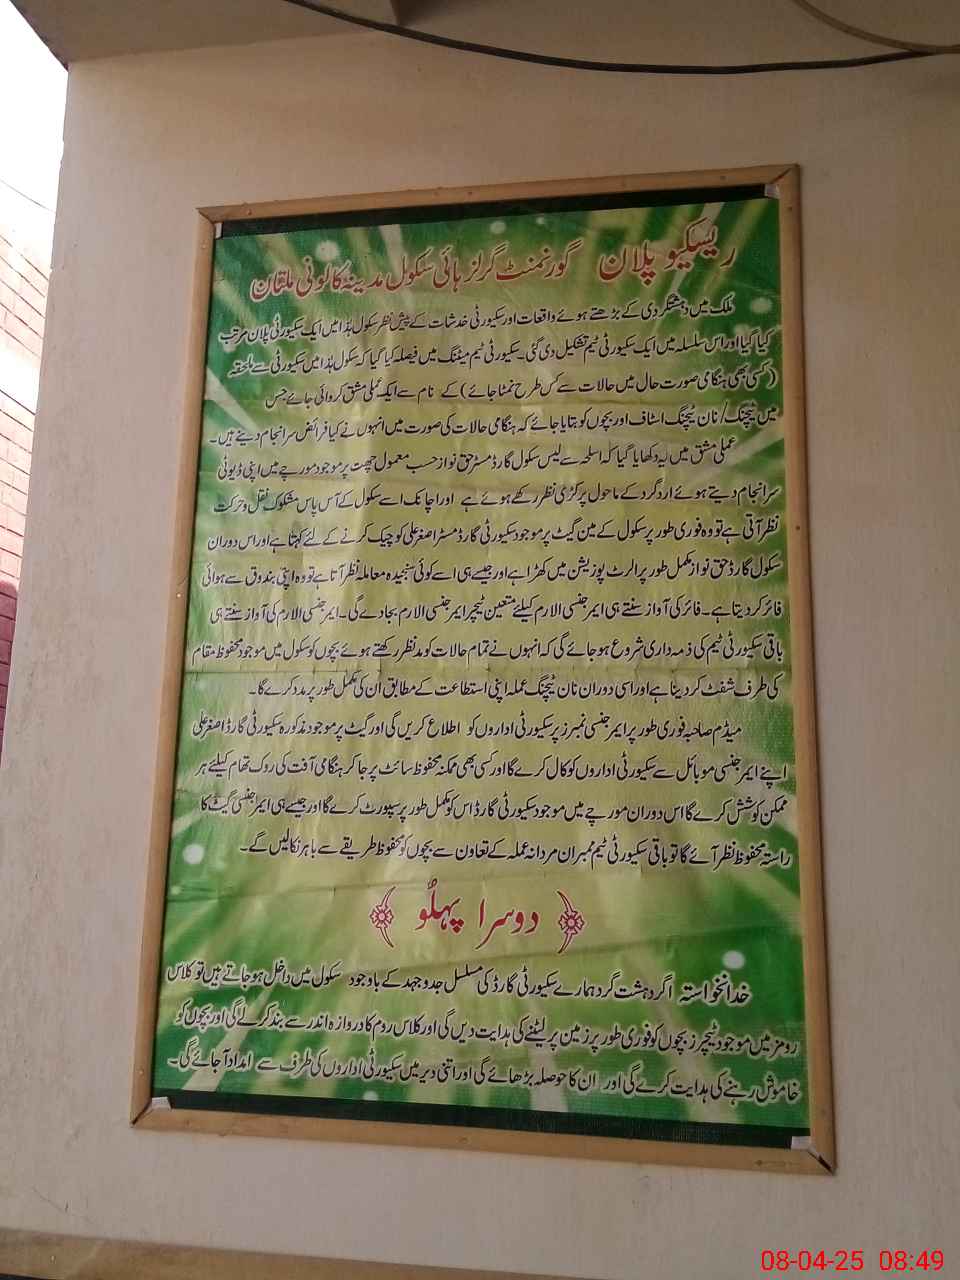 ریسکیو پلان گورنمنٹ گرلز ہائی سکول مدینہ کالونی ملتان
ملک میں دہشتگردی کے بڑھتے ہوئے واقعات اور سکیورٹی خدشات کے پیش نظر سکول ہٰذا میں ایک سکیورٹی پلان مرتب
کیا گیا اور اس سلسلہ میں ایک سکیورٹی ٹیم تشکیل دی گئی۔ سکیورٹی ٹیم میٹنگ میں فیصلہ کیا گیا کہ سکول ہٰذا میں سکیورٹی سے ملحقہ
(کسی بھی ہنگامی صورت حال میں حالات سے کس طرح نمٹا جائے) کے نام سے ایک عملی مشق کروائی جائے جس
میں ٹیچنگ/نان ٹیچنگ اسٹاف اور بچوں کو بتایا جائے کہ ہنگامی حالات کی صورت میں انہوں نے کیا فرائض سرانجام دینے ہیں۔
عملی مشق میں یہ دکھایا گیا کہ اسلحہ سے لیس سکول گارڈ مسٹر حق نواز حسب معمول چھت پر موجود مورچے میں اپنی ڈیوٹی
سرانجام دیتے ہوئے اردگرد کے ماحول پر کڑی نظر رکھے ہوئے ہے اور اچانک اسے سکول کے آس پاس مشکوک نقل و حرکت
نظر آتی ہے تو وہ فوری طور پر سکول کے مین گیٹ پر موجود سکیورٹی گارڈ مسٹر اصغر علی کو چیک کرنے کے لئے کہتا ہے اور اس دوران
سکول گارڈ حق نواز مکمل طور پر الرٹ پوزیشن میں کھڑا ہے اور جیسے ہی اسے کوئی سنجیدہ معاملہ نظر آتا ہے تو وہ اپنی بندوق سے ہوائی
فائر کر دیتا ہے۔ فائر کی آواز سنتے ہی ایمرجنسی الارم کیلئے متعین ٹیچر ایمرجنسی الارم بجا دے گی۔ ایمرجنسی الارم کی آواز سنتے ہی
باقی سکیورٹی ٹیم کی ذمہ داری شروع ہو جائے گی کہ انہوں نے تمام حالات کو مدنظر رکھتے ہوئے بچوں کو سکول میں موجود محفوظ مقام
کی طرف شفٹ کر دینا ہے اور اسی دوران نان ٹیچنگ عملہ اپنی استطاعت کے مطابق ان کی مکمل طور پر مدد کرے گا۔
میڈم صاحبہ فوری طور پر ایمرجنسی نمبرز پر سکیورٹی اداروں کو اطلاع کریں گی اور گیٹ پر موجود مذکورہ سکیورٹی گارڈ اصغر علی
اپنے ایمرجنسی موبائل سے سکیورٹی اداروں کو کال کرے گا اور کسی بھی ممکنہ محفوظ سائٹ پر جا کر ہنگامی آفت کی روک تھام کیلئے ہر
ممکن کوشش کرے گا اس دوران مورچے میں موجود سکیورٹی گارڈ اس کو مکمل طور پر سپورٹ کرے گا اور جیسے ہی ایمرجنسی گیٹ کا
راستہ محفوظ نظر آئے گا تو باقی سکیورٹی ٹیم ممبران مردانہ عملہ کے تعاون سے بچوں کو محفوظ طریقے سے باہر نکالیں گے۔
دوسرا پہلُو
خدانخواستہ اگر دہشت گرد ہمارے سکیورٹی گارڈ کی مسلسل جدوجہد کے باوجود سکول میں داخل ہو جاتے ہیں تو کلاس
رومز میں موجود ٹیچرز بچوں کو فوری طور پر زمین پر لیٹنے کی ہدایت دیں گی اور کلاس روم کا دروازہ اندر سے بند کر لے گی اور بچوں کو
خاموش رہنے کی ہدایت کرے گی اور ان کا حوصلہ بڑھائے گی اور اتنی دیر میں سکیورٹی اداروں کی طرف سے امداد آ جائے گی۔
08-04-25 08:49